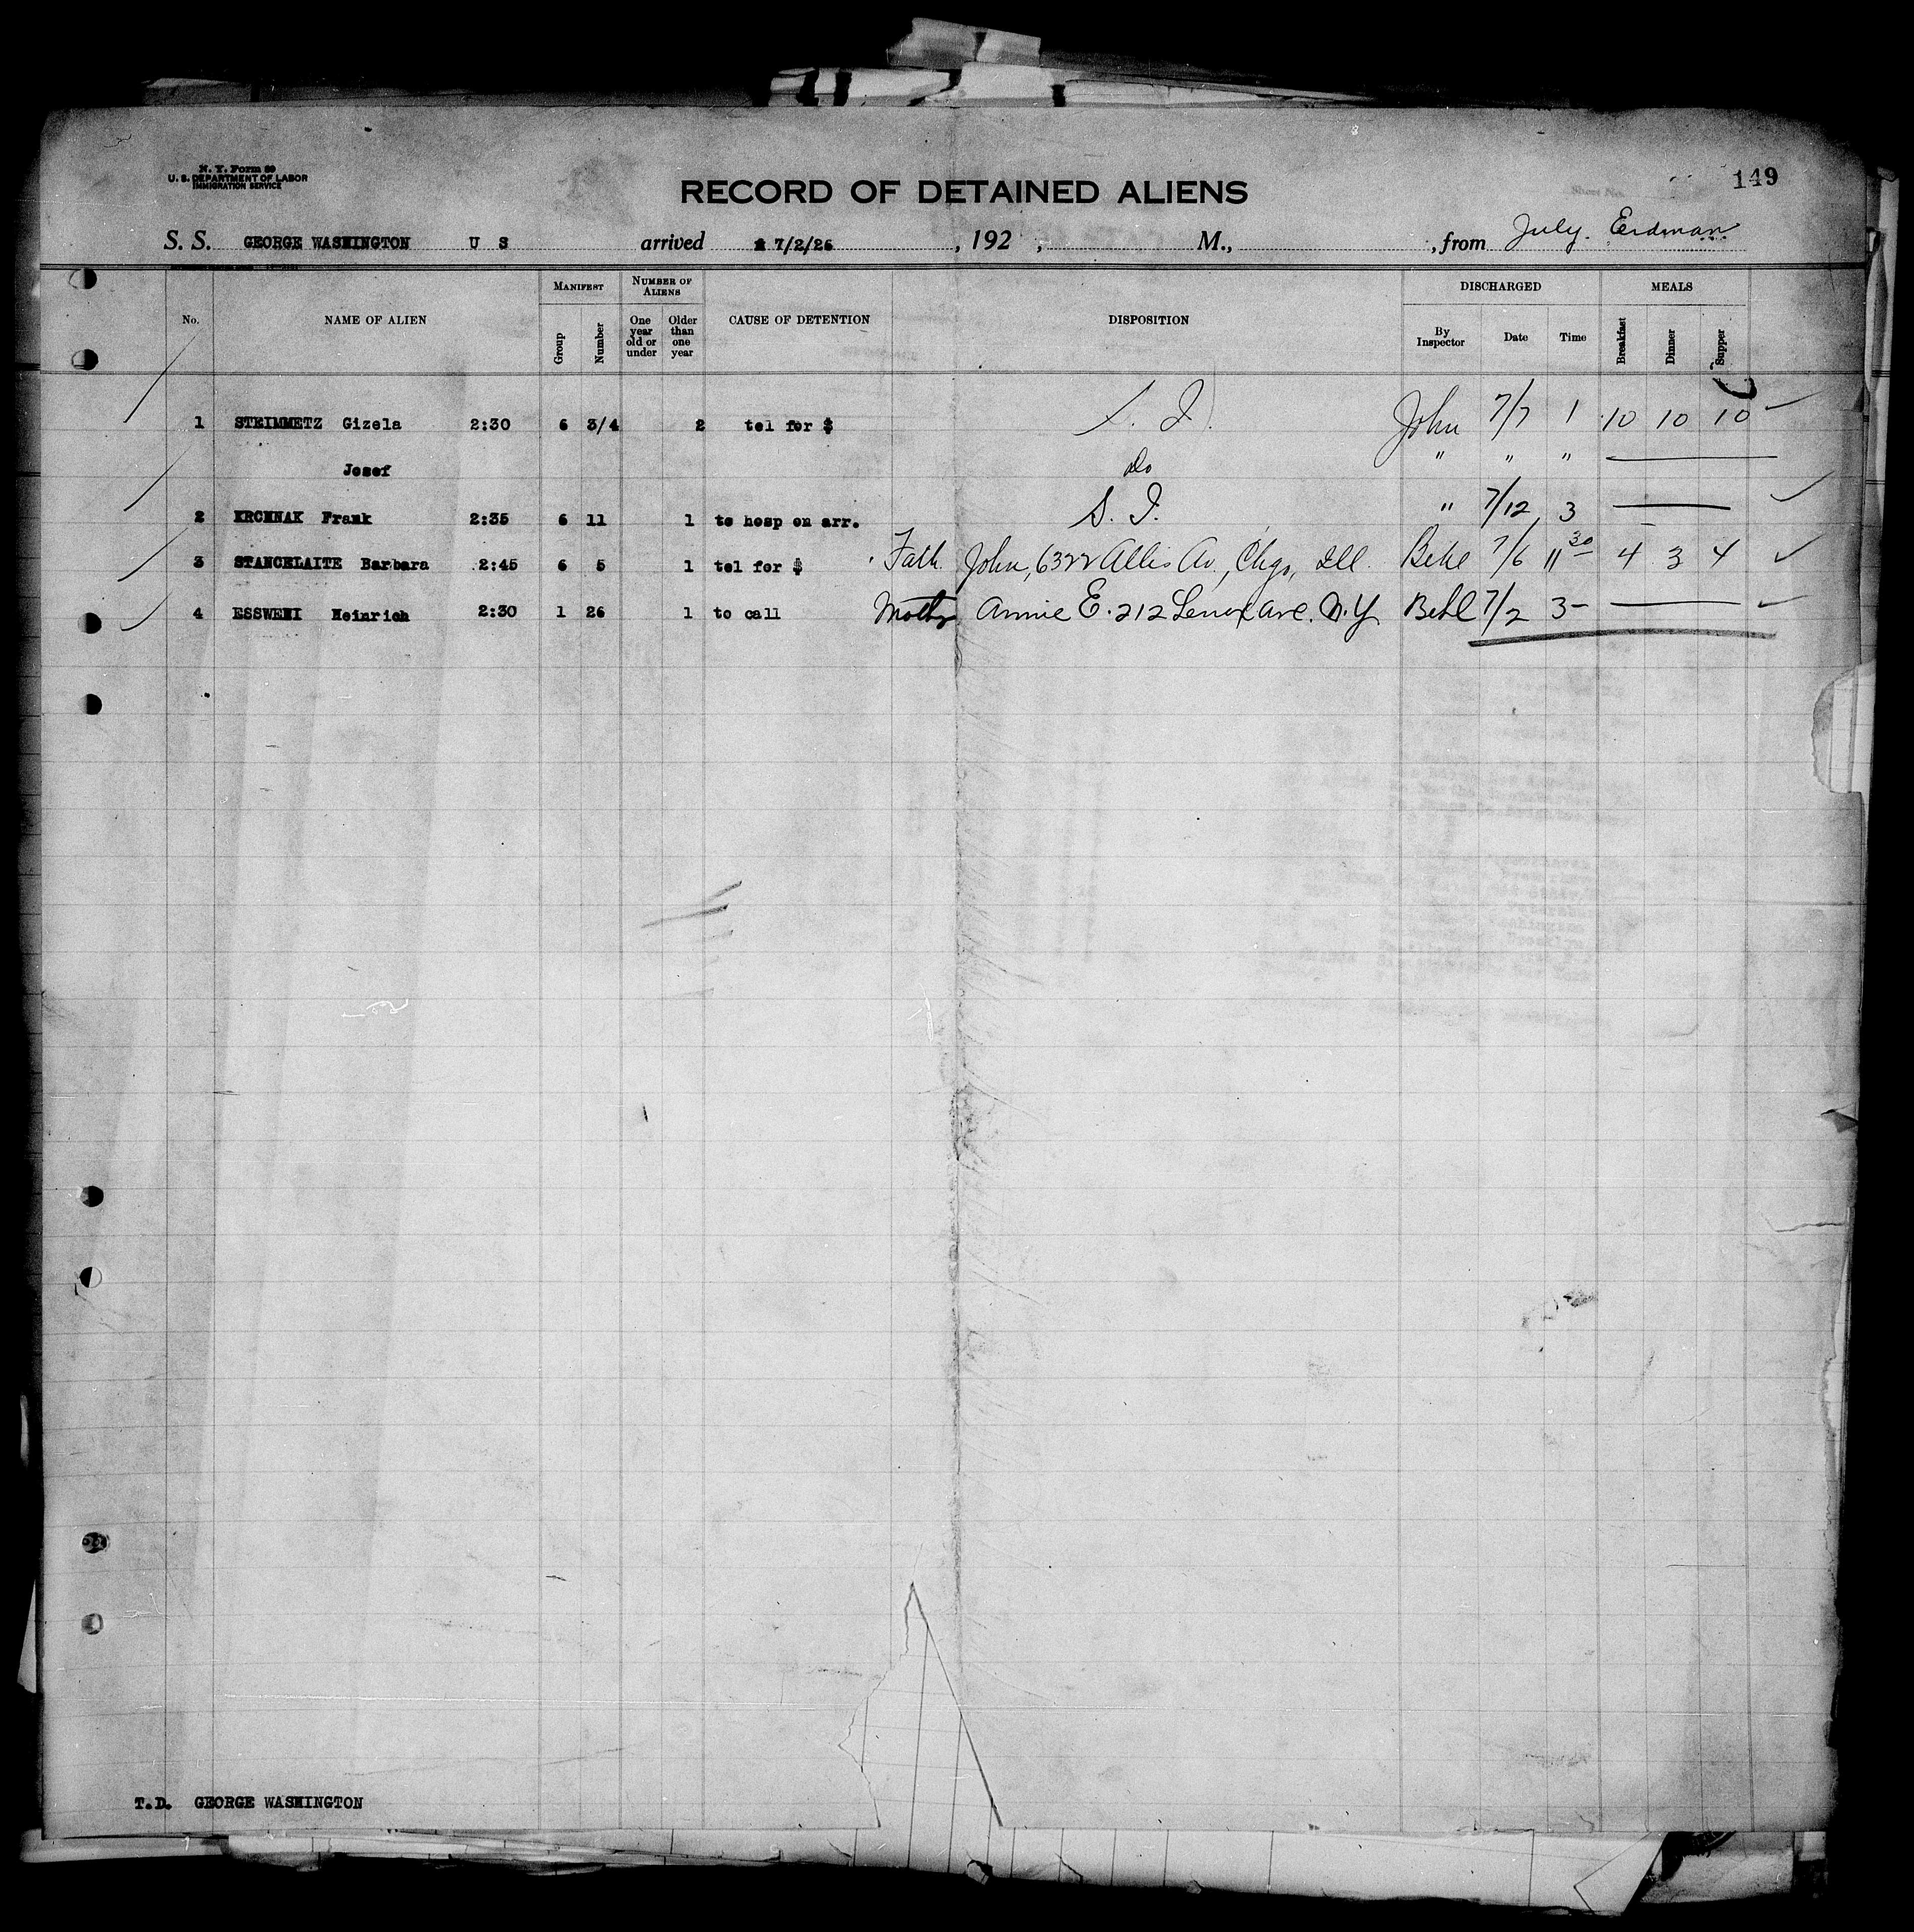 N. Y. Form 89
U. S. DEPARTMENT OF LABOR
IMMIGRATION SERVICE
149
RECORD OF DETAINED ALIENS
Sheet No.
S. S. GEORGE WASHINGTON U S arrived 7/2/26, 192 , M., , from July. Erdman
No. NAME OF ALIEN MANIFEST Group Number NUMBER OF ALIENS One year old or under Older than one year CAUSE OF DETENTION DISPOSITION DISCHARGED By Inspector Date Time MEALS Breakfast Dinner Supper
1 STEIMMETZ Gizela 2:30 6 3/4 2 tel for $ S. I. John 7/7 1 10 10 10
Josef do " " "
2 KRCHNAK Frank 2:35 6 11 1 to hosp on arr. S. I. " 7/12 3
3 STANCELAITE Barbara 2:45 6 5 1 tel for $ Fath John, 6322 Allis Av., Chgo, Ill. 7/6 11 30 4 3 4
4 ESSWENI Heinrich 2:30 1 26 1 to call Mother Annie E. 212 Lenox Ave. N.Y. 7/2 3-
T.D. GEORGE WASHINGTON